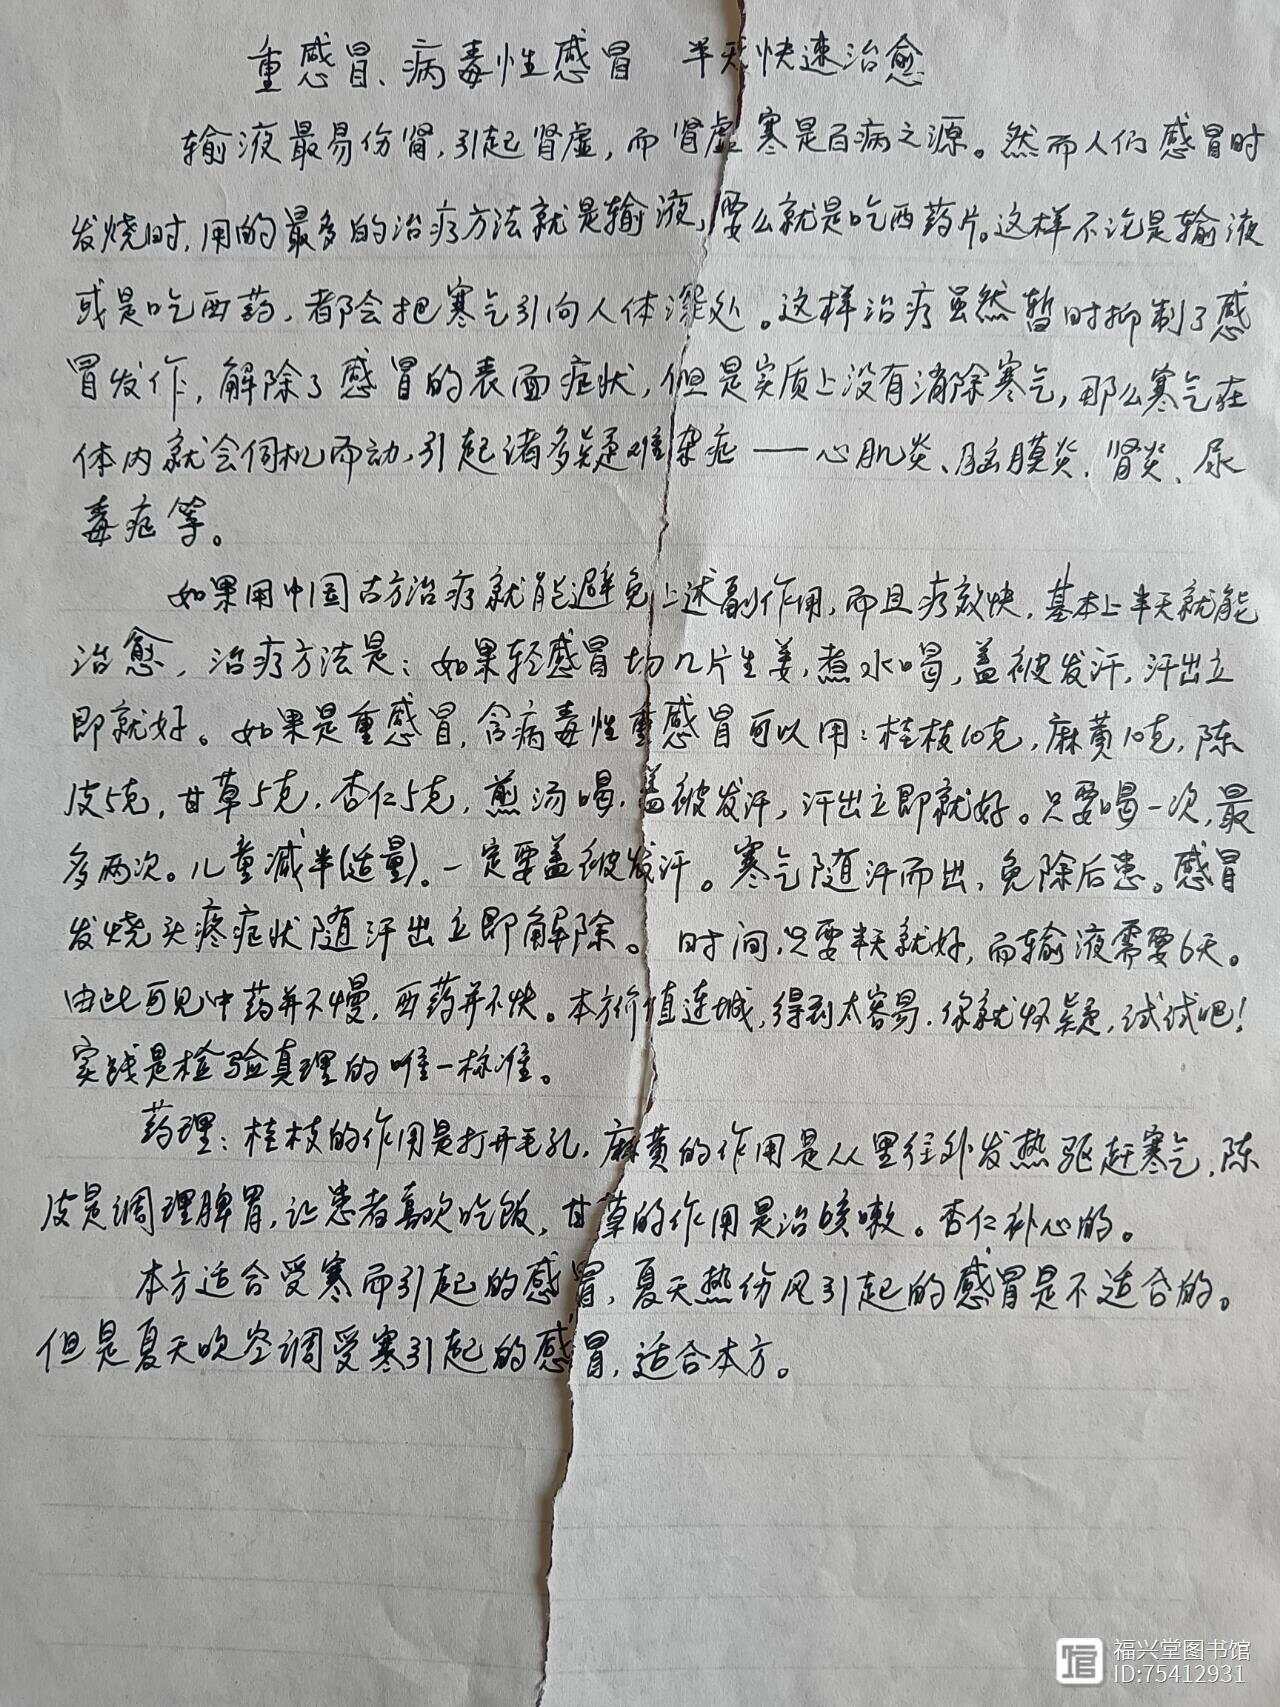 重感冒、病毒性感冒 半天快速治愈
输液最易伤肾,引起肾虚,而肾虚寒是百病之源。然而人们感冒时
发烧时,用的最多的治疗方法就是输液,要么就是吃西药片。这样不论是输液
或是吃西药,都会把寒气引向人体深处。这样治疗虽然暂时抑制了感
冒发作,解除了感冒的表面症状,但是实质上没有消除寒气,那么寒气在
体内就会伺机而动,引起诸多疑难杂症——心肌炎、脑膜炎、肾炎、尿
毒症等。
如果用中国古方治疗就能避免上述副作用,而且疗效快,基本上半天就能
治愈,治疗方法是:如果轻感冒切几片生姜,煮水喝,盖被发汗,汗出立
即就好。如果是重感冒,含病毒性重感冒可以用:桂枝10克,麻黄10克,陈
皮5克,甘草5克,杏仁5克,煎汤喝,盖被发汗,汗出立即就好。只要喝一次,最
多两次。儿童减半(适量)。一定要盖被发汗。寒气随汗而出,免除后患。感冒
发烧头疼症状随汗出立即解除。时间,只要半天就好,而输液需要6天。
由此可见中药并不慢,西药并不快。本方价值连城,得到太容易,你就怀疑,试试吧!
实践是检验真理的唯一标准。
药理:桂枝的作用是打开毛孔,麻黄的作用是从里往外发热驱赶寒气,陈
皮是调理脾胃,让患者喜欢吃饭,甘草的作用是治咳嗽。杏仁补心的。
本方适合受寒而引起的感冒,夏天热伤风引起的感冒是不适合的。
但是夏天吹空调受寒引起的感冒,适合本方。
福兴堂图书馆
ID:75412931